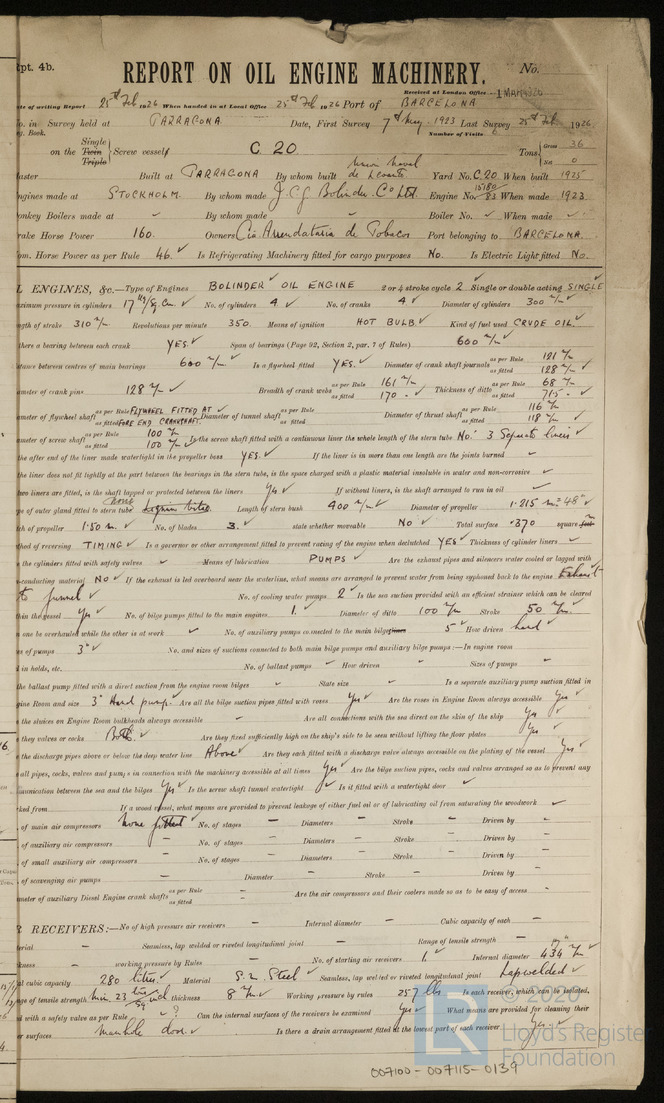 Rpt. 4b.
REPORT ON OIL ENGINE MACHINERY.
No.
Received at London Office 1 MAR 1926
te of writing Report 25th Feb 1926 When handed in at Local Office 25th Feb 1926 Port of BARCELONA
No. in Survey held at TARRAGONA Date, First Survey 7th May 1923 Last Survey 25th Feb 1926
g. Book. Number of Visits 6
on the Single Twin Triple Screw vessel C. 20. Tons Gross 36 Net 0
aster Built at TARRAGONA By whom built Union Naval de Levante Yard No. C.20 When built 1925
ngines made at STOCKHOLM. By whom made J. C. G. Bolinder Co Ltd. Engine No. When made 1923
onkey Boilers made at By whom made Boiler No. When made
rake Horse Power 160. Owners Cia Arrendataria de Tobacos Port belonging to BARCELONA.
om. Horse Power as per Rule 46. Is Refrigerating Machinery fitted for cargo purposes No. Is Electric Light fitted No.
L ENGINES, &c.—Type of Engines BOLINDER OIL ENGINE 2 or 4 stroke cycle 2 Single or double acting SINGLE
aximum pressure in cylinders 17 Kg/sq Cm. No. of cylinders 4 No. of cranks 4 Diameter of cylinders 300 m/m
ngth of stroke 310 m/m Revolutions per minute 350. Means of ignition HOT BULB Kind of fuel used CRUDE OIL.
there a bearing between each crank YES. Span of bearings (Page 92, Section 2, par. 7 of Rules) 600 m/m
stance between centres of main bearings 600 m/m Is a flywheel fitted YES. Diameter of crank shaft journals as per Rule 121 m/m as fitted 128 m/m
ameter of crank pins 128 m/m Breadth of crank webs as per Rule 161 m/m as fitted 170 Thickness of ditto as per Rule 68 m/m as fitted 71.5
ameter of flywheel shaft as per Rule FLYWHEEL FITTED AT as fitted FORE END CRANKSHAFT. Diameter of tunnel shaft as per Rule as fitted Diameter of thrust shaft as per Rule 116 m/m as fitted 118 m/m
ameter of screw shaft as per Rule 100 m/m as fitted 100 m/m Is the screw shaft fitted with a continuous liner the whole length of the stern tube No. 3 Separate liners
the after end of the liner made watertight in the propeller boss YES. If the liner is in more than one length are the joints burned
the liner does not fit tightly at the part between the bearings in the stern tube, is the space charged with a plastic material insoluble in water and non-corrosive
two liners are fitted, is the shaft lapped or protected between the liners Yes If without liners, is the shaft arranged to run in oil
pe of outer gland fitted to stern tube Lignum vitae. Length of stern bush 400 m/m Diameter of propeller 1.215 m = 48"
tch of propeller 1.50 m. No. of blades 3. state whether moveable No Total surface .370 square m
thod of reversing TIMING Is a governor or other arrangement fitted to prevent racing of the engine when declutched YES Thickness of cylinder liners
the cylinders fitted with safety valves Means of lubrication PUMPS Are the exhaust pipes and silencers water cooled or lagged with
-conducting material No If the exhaust is led overboard near the waterline, what means are arranged to prevent water from being syphoned back to the engine Exhaust
to funnel No. of cooling water pumps 2 Is the sea suction provided with an efficient strainer which can be cleared
thin the vessel Yes No. of bilge pumps fitted to the main engines 1. Diameter of ditto 100 m/m Stroke 50 m/m.
n one be overhauled while the other is at work No. of auxiliary pumps connected to the main bilge lines 5 How driven hand
es of pumps 3" No. and sizes of suctions connected to both main bilge pumps and auxiliary bilge pumps:—In engine room
d in holds, etc. No. of ballast pumps How driven Sizes of pumps
the ballast pump fitted with a direct suction from the engine room bilges State size Is a separate auxiliary pump suction fitted in
gine Room and size 3" Hand pump. Are all the bilge suction pipes fitted with roses Yes Are the roses in Engine Room always accessible Yes
e the sluices on Engine Room bulkheads always accessible Are all connections with the sea direct on the skin of the ship Yes
e they valves or cocks Both. Are they fixed sufficiently high on the ship's side to be seen without lifting the floor plates Yes
e the discharge pipes above or below the deep water line Above Are they each fitted with a discharge valve always accessible on the plating of the vessel Yes
e all pipes, cocks, valves, and pumps in connection with the machinery accessible at all times Yes Are the bilge suction pipes, cocks and valves arranged so as to prevent any
munication between the sea and the bilges Yes Is the screw shaft tunnel watertight Is it fitted with a watertight door
rked from If a wood vessel, what means are provided to prevent leakage of either fuel oil or of lubricating oil from saturating the woodwork
. of main air compressors None fitted No. of stages Diameters Stroke Driven by
. of auxiliary air compressors No. of stages Diameters Stroke Driven by
. of small auxiliary air compressors No. of stages Diameters Stroke Driven by
. of scavenging air pumps Diameter Stroke Driven by
ameter of auxiliary Diesel Engine crank shafts as per Rule as fitted Are the air compressors and their coolers made so as to be easy of access
R RECEIVERS:—No of high pressure air receivers Internal diameter Cubic capacity of each
terial Seamless, lap welded or riveted longitudinal joint Range of tensile strength
ckness working pressure by Rules No. of starting air receivers 1. Internal diameter 434 m/m
al cubic capacity 280 litres. Material S. M. Steel Seamless, lap welded or riveted longitudinal joint Lapwelded
nge of tensile strength thickness 8 m/m Working pressure by rules 257 lbs Is each receiver, which can be isolated,
d with a safety valve as per Rule ? Can the internal surfaces of the receivers be examined Yes What means are provided for cleaning their
er surfaces manhole door Is there a drain arrangement fitted at the lowest part of each receiver Yes
© 2020
LR
Lloyd's Register
Foundation
007100-007115-0139